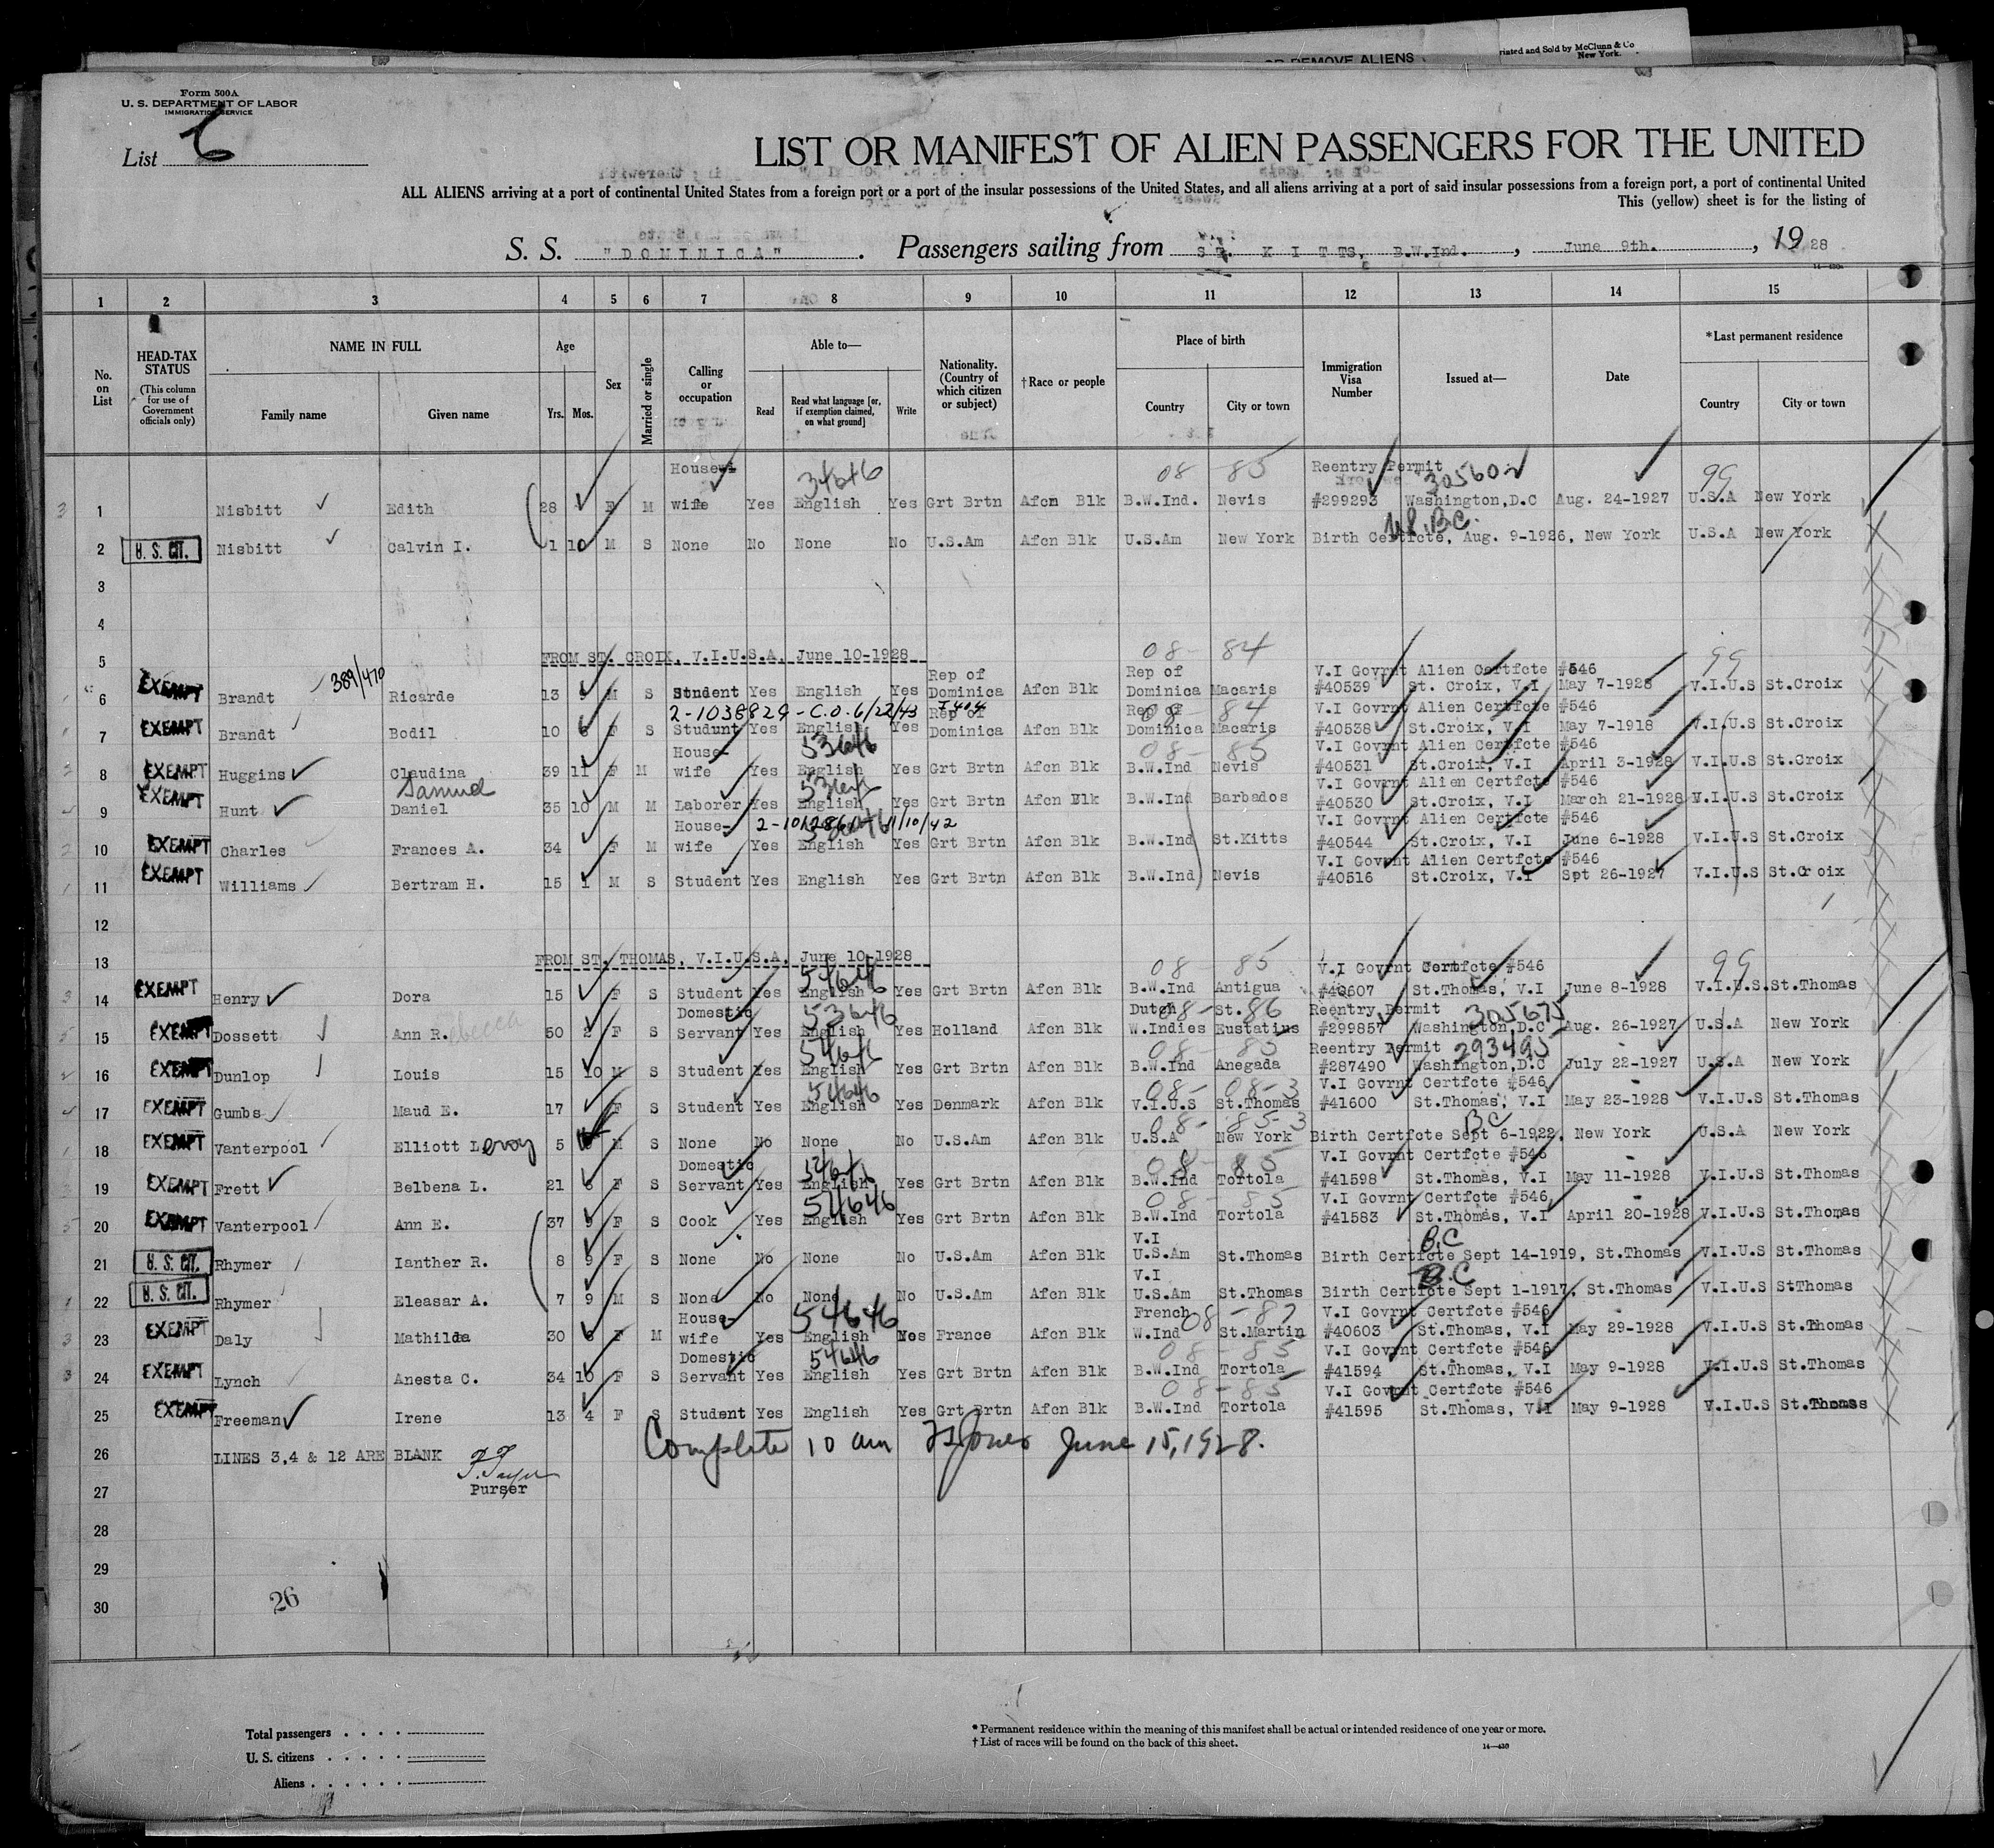 Printed and Sold by McClunn & Co
New York.
OR REMOVE ALIENS
Form 500A
U. S. DEPARTMENT OF LABOR
IMMIGRATION SERVICE
List 6
LIST OR MANIFEST OF ALIEN PASSENGERS FOR THE UNITED
ALL ALIENS arriving at a port of continental United States from a foreign port or a port of the insular possessions of the United States, and all aliens arriving at a port of said insular possessions from a foreign port, a port of continental United
This (yellow) sheet is for the listing of
S. S. "DOMINICA". Passengers sailing from ST. KITTS, B.W.Ind., June 9th., 1928
1 2 3 4 5 6 7 8 9 10 11 12 13 14 15
No. on List
HEAD-TAX STATUS (This column for use of Government officials only)
NAME IN FULL Family name Given name
Age Yrs. Mos.
Sex
Married or single
Calling or occupation
Able to— Read Read what language [or, if exemption claimed, on what ground] Write
Nationality. (Country of which citizen or subject)
†Race or people
Place of birth Country City or town
Immigration Visa Number
Issued at—
Date
*Last permanent residence Country City or town
House 34646 08-85 Reentry Permit 305602 99
1 Nisbitt Edith 28 F M wife Yes English Yes Grt Brtn Afcn Blk B.W.Ind. Nevis #299293 Washington,D.C Aug. 24-1927 U.S.A New York
U.S.B.C.
2 U.S. CIT. Nisbitt Calvin I. 1 10 M S None No None No U.S.Am Afcn Blk U.S.Am New York Birth Certfcte, Aug. 9-1926, New York U.S.A New York
3
4
5 FROM ST. CROIX, V.I.U.S.A. June 10-1928 08-84 99
389/470 Rep of Rep of V.I Govrnt Alien Certfcte #546
6 EXEMPT Brandt Ricarde 13 M S Student Yes English Yes Dominica Afcn Blk Dominica Macaris #40539 St. Croix, V.I May 7-1928 V.I.U.S St.Croix
2-1038829-C.O.6/22/43 I404 Rep of Rep of 08-84 V.I Govrnt Alien Certfcte #546
7 EXEMPT Brandt Bodil 10 6 F S Studunt Yes English Yes Dominica Afcn Blk Dominica Macaris #40538 St.Croix, V.I May 7-1918 V.I.U.S St.Croix
House- 53646 08-85 V.I Govrnt Alien Certfcte #546
8 EXEMPT Huggins Claudina 39 11 F M wife Yes English Yes Grt Brtn Afcn Blk B.W.Ind Nevis #40531 St.Croix, V.I April 3-1928 V.I.U.S St.Croix
Samuel V.I Govrnt Alien Certfcte #546
9 EXEMPT Hunt Daniel 35 10 M M Laborer Yes English Yes Grt Brtn Afcn Blk B.W.Ind Barbados #40530 St.Croix, V.I March 21-1928 V.I.U.S St.Croix
House- 11/10/42 V.I Govrnt Alien Certfcte #546
10 EXEMPT Charles Frances A. 34 F M wife Yes English Yes Grt Brtn Afcn Blk B.W.Ind St.Kitts #40544 St.Croix, V.I June 6-1928 V.I.U.S St.Croix
V.I Govrnt Alien Certfcte #546
11 EXEMPT Williams Bertram H. 15 1 M S Student Yes English Yes Grt Brtn Afcn Blk B.W.Ind Nevis #40516 St.Croix, V.I Spt 26-1927 V.I.U.S St.Croix
12
13 FROM ST. THOMAS, V.I.U.S.A. June 10-1928
54646 08-85 V.I Govrnt Certfcte #546 99
14 EXEMPT Henry Dora 15 F S Student Yes English Yes Grt Brtn Afcn Blk B.W.Ind Antigua #40607 St.Thomas, V.I June 8-1928 V.I.U.S. St.Thomas
Domestic 53646 Dutch 08-86 St. Reentry Permit 305675
15 EXEMPT Dossett Ann Rebecca 50 2 F S Servant Yes English Yes Holland Afcn Blk W.Indies Eustatius #299857 Washington,D.C Aug. 26-1927 U.S.A New York
54646 08-85 Reentry Permit 293495
16 EXEMPT Dunlop Louis 15 10 M S Student Yes English Yes Grt Brtn Afcn Blk B.W.Ind Anegada #287490 Washington,D.C July 22-1927 U.S.A New York
54646 08-08-3 V.I Govrnt Certfcte #546
17 EXEMPT Gumbs Maud E. 17 F S Student Yes English Yes Denmark Afcn Blk V.I.U.S St.Thomas #41600 St.Thomas, V.I May 23-1928 V.I.U.S St.Thomas
08-85-3 BC
18 EXEMPT Vanterpool Elliott Leroy 5 M S None No None No U.S.Am Afcn Blk U.S.A New York Birth Certfcte Sept 6-1922, New York U.S.A New York
Domestic 54646 08-85 V.I Govrnt Certfcte #546
19 EXEMPT Frett Belbena L. 21 F S Servant Yes English Yes Grt Brtn Afcn Blk B.W.Ind Tortola #41598 St.Thomas, V.I May 11-1928 V.I.U.S St.Thomas
54646 08-85 V.I Govrnt Certfcte #546
20 EXEMPT Vanterpool Ann E. 37 9 F S Cook Yes English Yes Grt Brtn Afcn Blk B.W.Ind Tortola #41583 St.Thomas, V.I April 20-1928 V.I.U.S St.Thomas
V.I B.C
21 U.S. CIT. Rhymer Ianther R. 8 9 F S None No None No U.S.Am Afcn Blk U.S.Am St.Thomas Birth Certfcte Sept 14-1919, St.Thomas V.I.U.S St.Thomas
V.I B.C
22 U.S. CIT. Rhymer Eleasar A. 7 9 M S None No None No U.S.Am Afcn Blk U.S.Am St.Thomas Birth Certfcte Sept 1-1917, St.Thomas V.I.U.S StThomas
House- 54646 French 08-87 V.I Govrnt Certfcte #546
23 EXEMPT Daly Mathilda 30 6 F M wife Yes English Yes France Afcn Blk W.Ind St.Martin #40603 St.Thomas, V.I May 29-1928 V.I.U.S St.Thomas
Domestic 54646 08-85 V.I Govrnt Certfcte #546
24 EXEMPT Lynch Anesta C. 34 10 F S Servant Yes English Yes Grt Brtn Afcn Blk B.W.Ind Tortola #41594 St.Thomas, V.I May 9-1928 V.I.U.S St.Thomas
08-85 V.I Govrnt Certfcte #546
25 EXEMPT Freeman Irene 13 4 F S Student Yes English Yes Grt Brtn Afcn Blk B.W.Ind Tortola #41595 St.Thomas, V.I May 9-1928 V.I.U.S St.Thomas
26 LINES 3,4 & 12 ARE BLANK Complete 10 am Jones June 15, 1928.
27 Purser
28
29
30
26
Total passengers
U. S. citizens
Aliens
* Permanent residence within the meaning of this manifest shall be actual or intended residence of one year or more.
† List of races will be found on the back of this sheet.
14—430